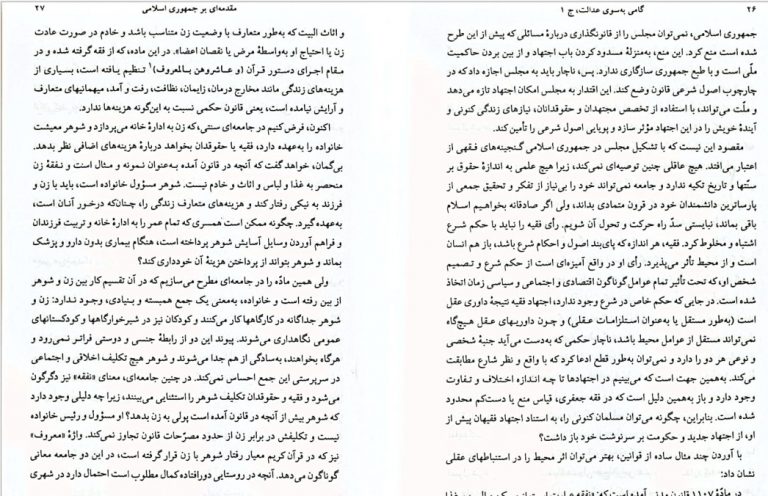 ۲۶ گامی به‌سوی عدالت، ج ۱
جمهوری اسلامی، نمی‌توان مجلس را از قانونگذاری دربارهٔ مسائلی که پیش از این طرح
شده است منع کرد. این منع، به‌منزلهٔ مسدود کردن باب اجتهاد و از بین بردن حاکمیت
ملّی است و با طبع جمهوری سازگاری ندارد. پس، ناچار باید به مجلس اجازه داد که در
چارچوب اصول شرعی قانون وضع کند. این اقتدار به مجلس امکان اجتهاد تازه می‌دهد
و ملّت می‌تواند، با استفاده از تخصص مجتهدان و حقوقدانان، نیازهای زندگی کنونی و
آیندهٔ خویش را در این اجتهاد مؤثر سازد و پویایی اصول شرعی را تأمین کند.
مقصود این نیست که با تشکیل مجلس در جمهوری اسلامی گنجینه‌های فقهی از
اعتبار می‌افتد. هیچ عاقلی چنین توصیه‌ای نمی‌کند، زیرا هیچ علمی به اندازهٔ حقوق بر
سنّتها و تاریخ تکیه ندارد و جامعه نمی‌تواند خود را بی‌نیاز از تفکر و تحقیق جمعی از
پارساترین دانشمندان خود در قرون متمادی بداند، ولی اگر صادقانه بخواهیم اسلام
باقی بماند، نبایستی سدّ راه حرکت و تحول آن شویم. رأی فقیه را نباید با حکم شرع
اشتباه و مخلوط کرد. فقیه، هر اندازه که پای‌بند اصول و احکام شرع باشد، باز هم انسان
است و از محیط تأثر می‌پذیرد. رأی او در واقع آمیزه‌ای است از حکم شرع و تصمیم
شخص او، که تحت تأثیر تمام عوامل گوناگون اقتصادی و اجتماعی و سیاسی زمان اتخاذ
شده است. در جایی که حکم خاص در شرع وجود ندارد، اجتهاد فقیه نتیجهٔ داوری عقل
است (به‌طور مستقل یا به‌عنوان استلزامات عقلی) و چون داوریهای عقل هیچ‌گاه
نمی‌تواند مستقل از عوامل محیط باشد، ناچار حکمی که به‌دست می‌آید جنبهٔ شخصی
و نوعی هر دو را دارد و نمی‌توان به‌طور قطع ادعا کرد که با واقع و نظر شارع مطابقت
می‌کند. به‌همین جهت است که می‌بینیم در اجتهادها تا چه اندازه اختلاف و تفاوت
وجود دارد و باز به‌همین دلیل است که در فقه جعفری، قیاس منع یا دست‌کم محدود
شده است. بنابراین، چگونه می‌توان مسلمان کنونی را، به استناد اجتهاد فقیهان پیش از
او، از اجتهاد جدید و حکومت بر سرنوشت خود باز داشت؟
با آوردن چند مثال ساده از قوانین، بهتر می‌توان اثر محیط را در استنباطهای عقلی
نشان داد:
در مادّهٔ ۱۱۰۷ قانون مدنی آمده است که:
مقدمه‌ای بر جمهوری اسلامی ۲۷
و اثاث البیت که به‌طور متعارف با وضعیت زن متناسب باشد و خادم در صورت عادت
زن یا احتیاج او به‌واسطهٔ مرض یا نقصان اعضا». در این ماده، که از فقه گرفته شده و در
مقام اجرای دستور قرآن (و عاشروهن بالمعروف)۱ تنظیم یافته است، بسیاری از
هزینه‌های زندگی مانند مخارج درمان، زایمان، نظافت، رفت و آمد، میهمانیهای متعارف
و آرایش نیامده است، یعنی قانون حکمی نسبت به این‌گونه هزینه‌ها ندارد.
اکنون، فرض کنیم در جامعه‌ای سنتی، که زن به ادارهٔ خانه می‌پردازد و شوهر معیشت
خانواده را به‌عهده دارد، فقیه یا حقوقدان بخواهد دربارهٔ هزینه‌های اضافی نظر بدهد.
بی‌گمان، خواهد گفت که آنچه در قانون آمده به‌عنوان نمونه و مثال است و نفقهٔ زن
منحصر به غذا و لباس و اثاث و خادم نیست. شوهر مسؤول خانواده است، باید با زن و
فرزند به نیکی رفتار کند و هزینه‌های متعارف زندگی را، چنان‌که درخور آنان است،
به‌عهده گیرد. چگونه ممکن است همسری که تمام عمر را به ادارهٔ خانه و تربیت فرزندان
و فراهم آوردن وسایل آسایش شوهر پرداخته است، هنگام بیماری بدون دارو و پزشک
بماند و شوهر بتواند از پرداختن هزینهٔ آن خودداری کند؟
ولی همین مادّه را در جامعه‌ای مطرح می‌سازیم که در آن تقسیم کار بین زن و شوهر
از بین رفته است و خانواده، به‌معنی یک جمع همبسته و بنیادی، وجود ندارد: زن و
شوهر جداگانه در کارگاهها کار می‌کنند و کودکان نیز در شیرخوارگاهها و کودکستانهای
عمومی نگاهداری می‌شوند. پیوند این دو از رابطهٔ جنسی و دوستی فراتر نمی‌رود و
هرگاه بخواهند، به‌سادگی از هم جدا می‌شوند و شوهر هیچ تکلیف اخلاقی و اجتماعی
در سرپرستی این جمع احساس نمی‌کند. در چنین جامعه‌ای، معنای «نفقه» نیز دگرگون
می‌شود و فقیه و حقوقدان تکلیف شوهر را استثنایی می‌بینند، زیرا چه دلیلی وجود دارد
که شوهر بیش از آنچه در قانون آمده است پولی به زن بدهد؟ او مسؤول و رئیس خانواده
نیست و تکلیفش در برابر زن از حدود مصرّحات قانون تجاوز نمی‌کند. واژهٔ «معروف»
نیز که در قرآن کریم معیار رفتار شوهر با زن قرار گرفته است، در این دو جامعه معانی
گوناگون می‌دهد. آنچه در روستایی دورافتاده کمال مطلوب است احتمال دارد در شهری